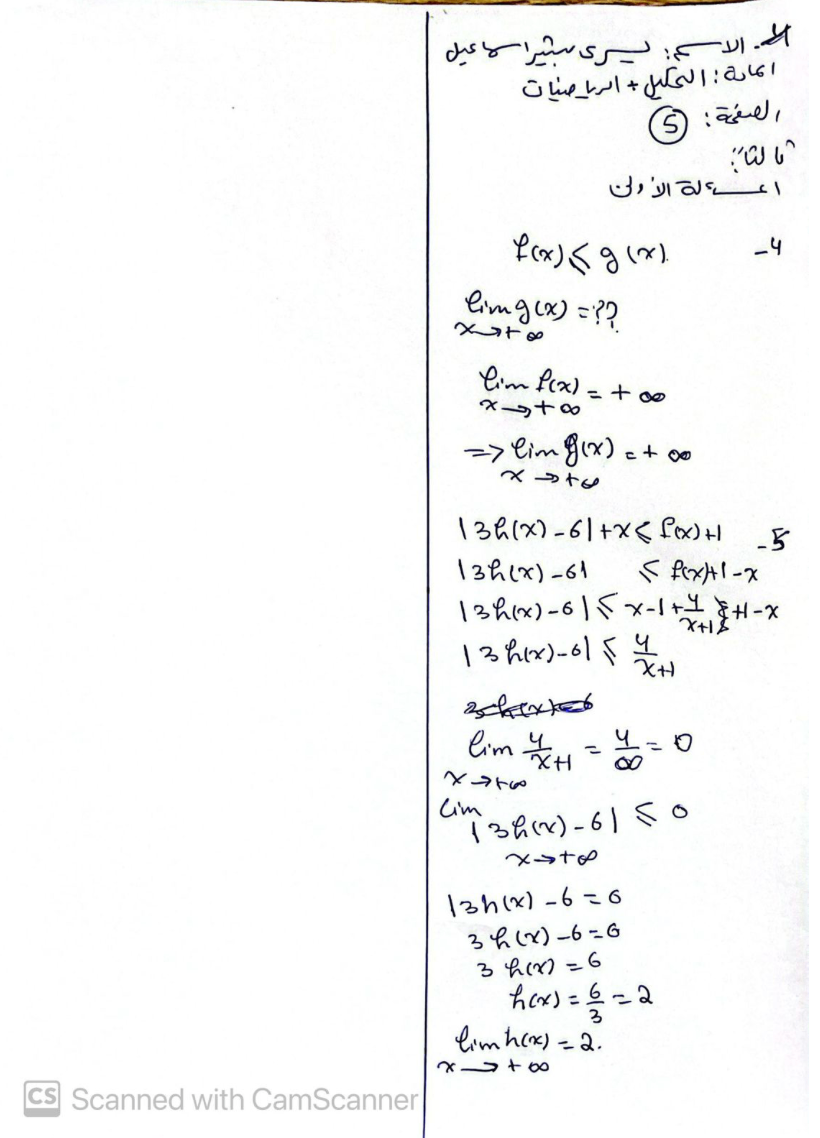 الاسم: يسرى بشير اسماعيل
المادة: التحليل + الرياضيات
الصفحة: 5
ثالثا":
المسألة الأولى
f(x) ⩽ g(x). -4
lim g(x) = ??
x→+∞
lim f(x) = +∞
x→+∞
=> lim g(x) = +∞
x→+∞
|3h(x) - 6| + x ⩽ f(x) + 1 -5
|3h(x) - 6| ⩽ f(x) + 1 - x
|3h(x) - 6| ⩽ x - 1 + 4/(x+1) + 1 - x
|3h(x) - 6| ⩽ 4/(x+1)
3h(x) = 6
lim 4/(x+1) = 4/∞ = 0
x→+∞
lim |3h(x) - 6| ⩽ 0
x→+∞
|3h(x) - 6 = 0
3h(x) - 6 = 0
3h(x) = 6
h(x) = 6/3 = 2
lim h(x) = 2.
x→+∞
CS Scanned with CamScanner